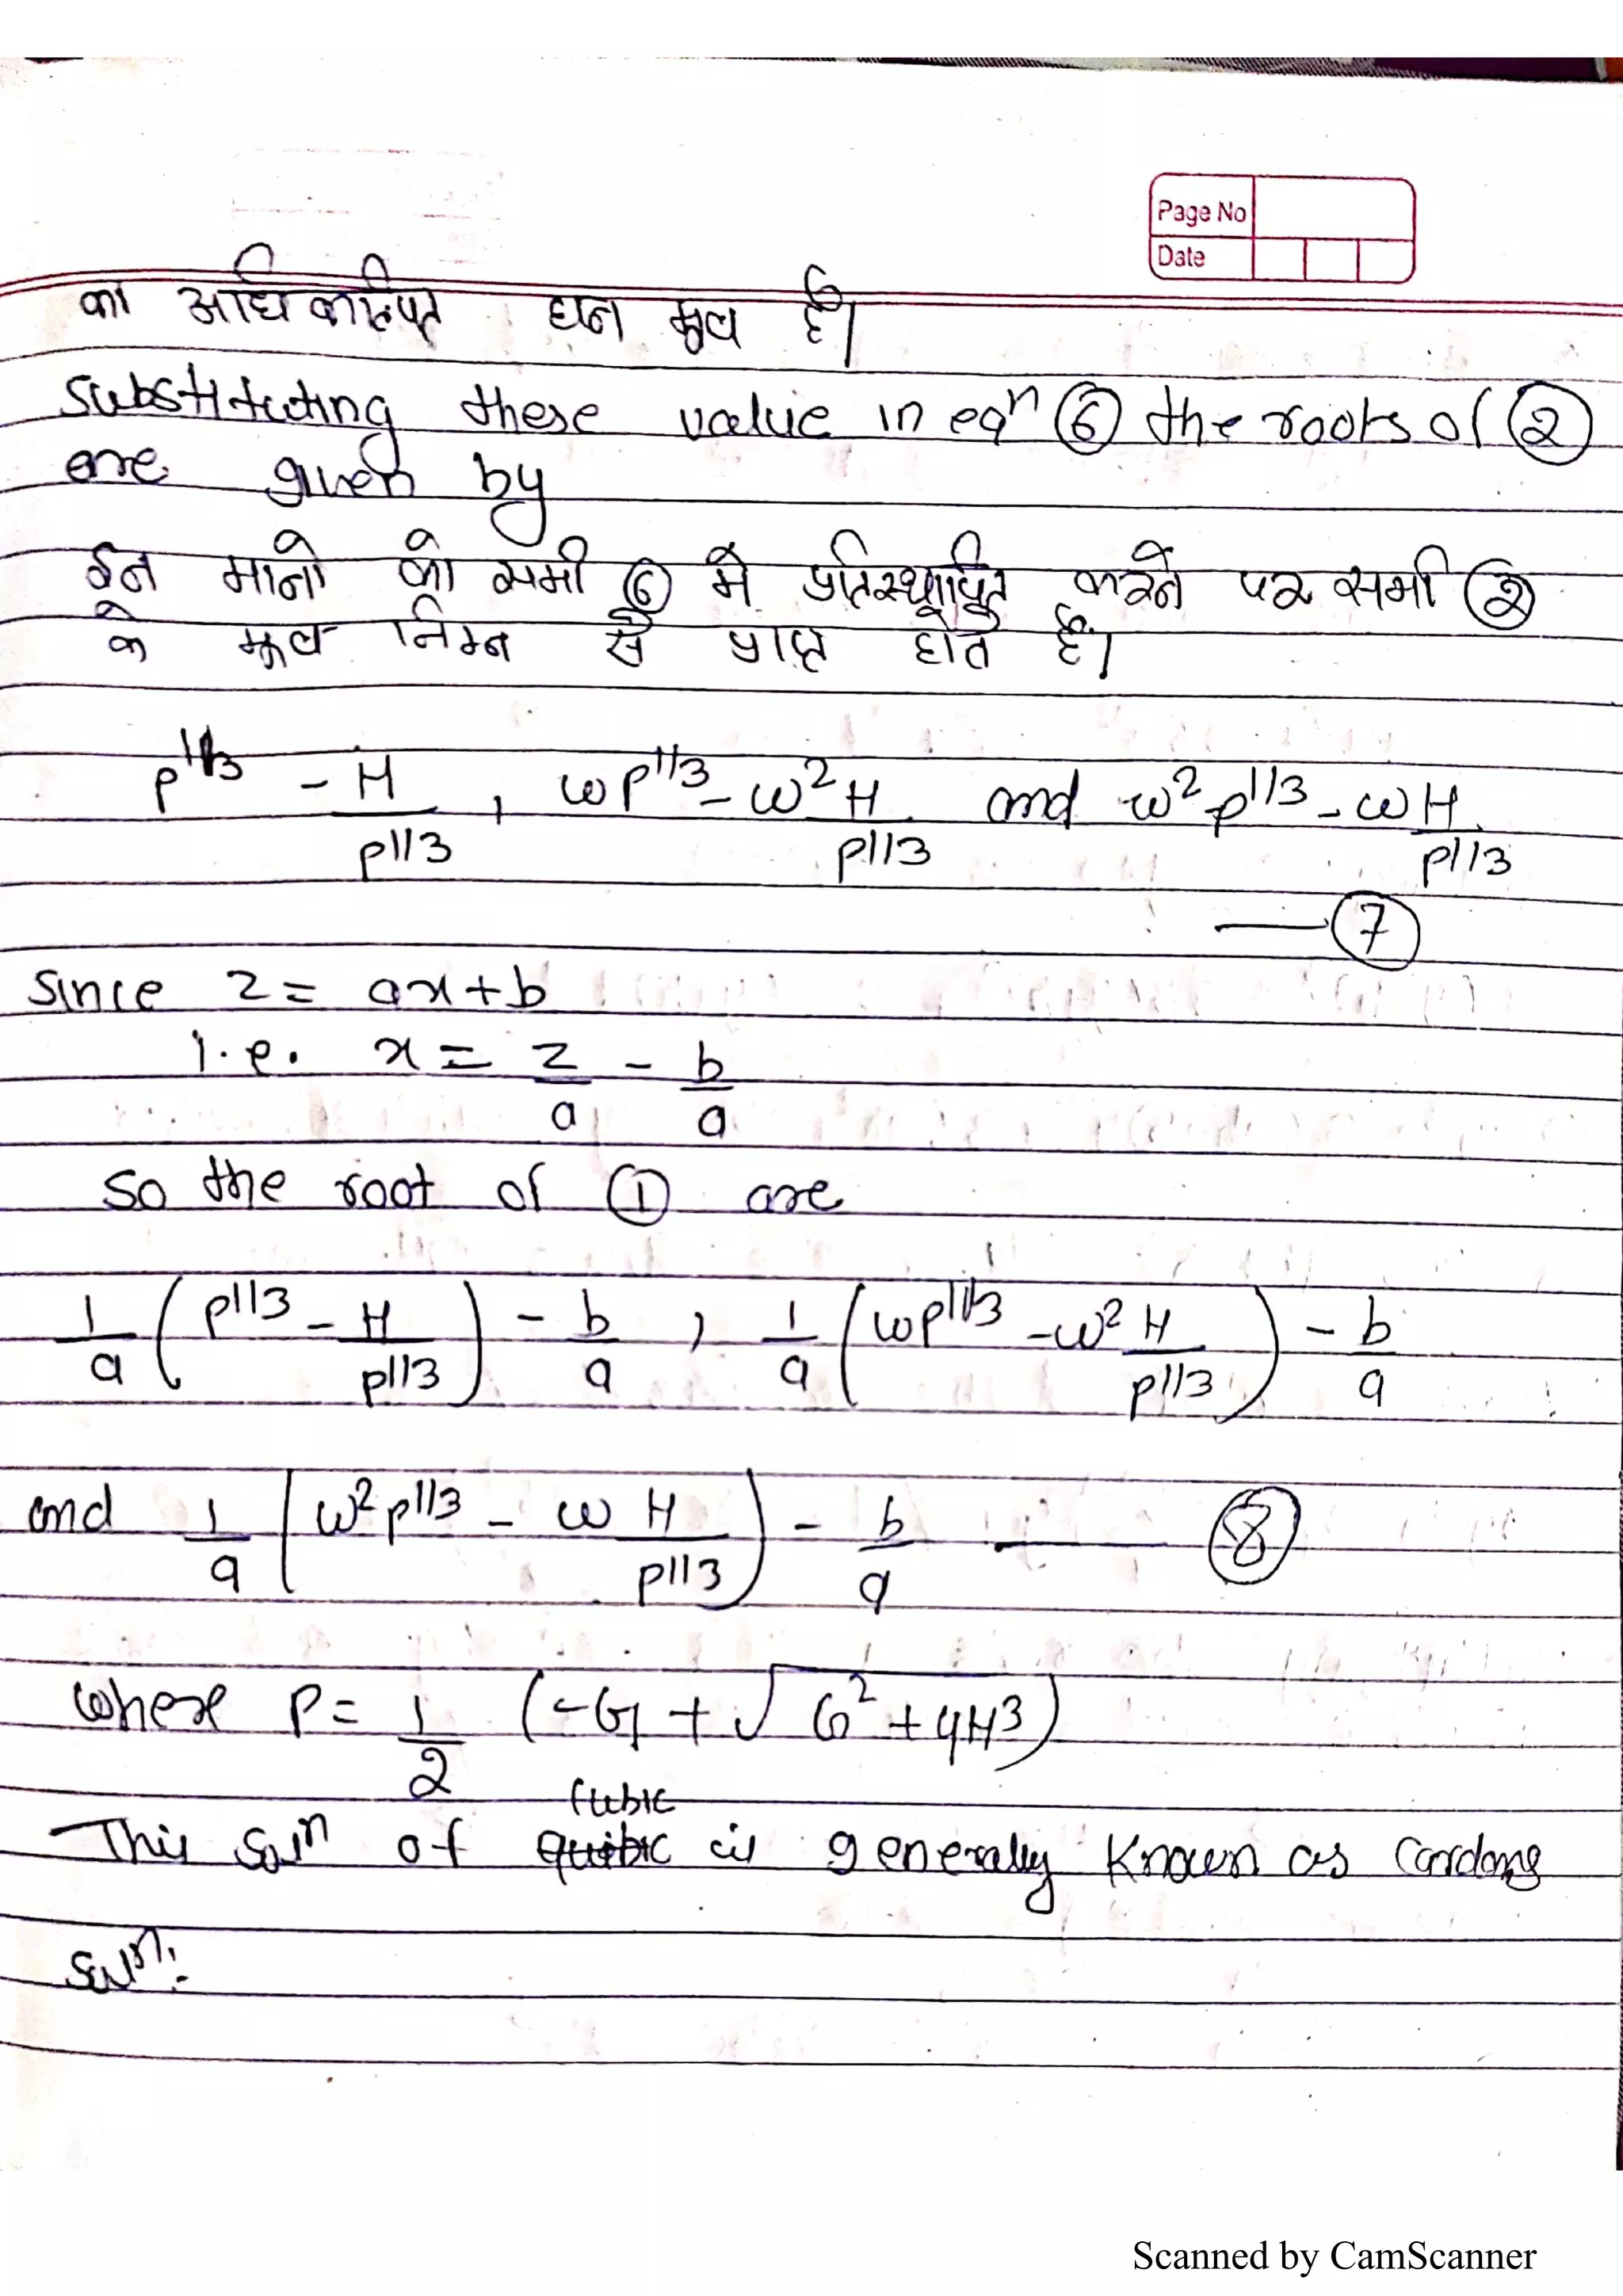 Page No
Date
का अधिकल्पित घन मूल है।
Substituting these value in eqⁿ ⑥ the roots of ②
are given by
इन मानो को समी ⑥ मे प्रतिस्थापित करने पर समी ②
के मूल निम्न से प्राप्त होते है।
p^1/3 - H/p^1/3 , ωp^1/3 - ω² H/p^1/3 and ω² p^1/3 - ω H/p^1/3
— ⑦
Since z = ax+b
i.e. x = z/a - b/a
So the root of ① are
1/a (p^1/3 - H/p^1/3) - b/a , 1/a (ωp^1/3 - ω² H/p^1/3) - b/a
and 1/a (ω² p^1/3 - ω H/p^1/3) - b/a — ⑧
where P = 1/2 (-G + √G² + 4H³)
This Solⁿ of cubic is generally known as Cardons
Solⁿ.
Scanned by CamScanner